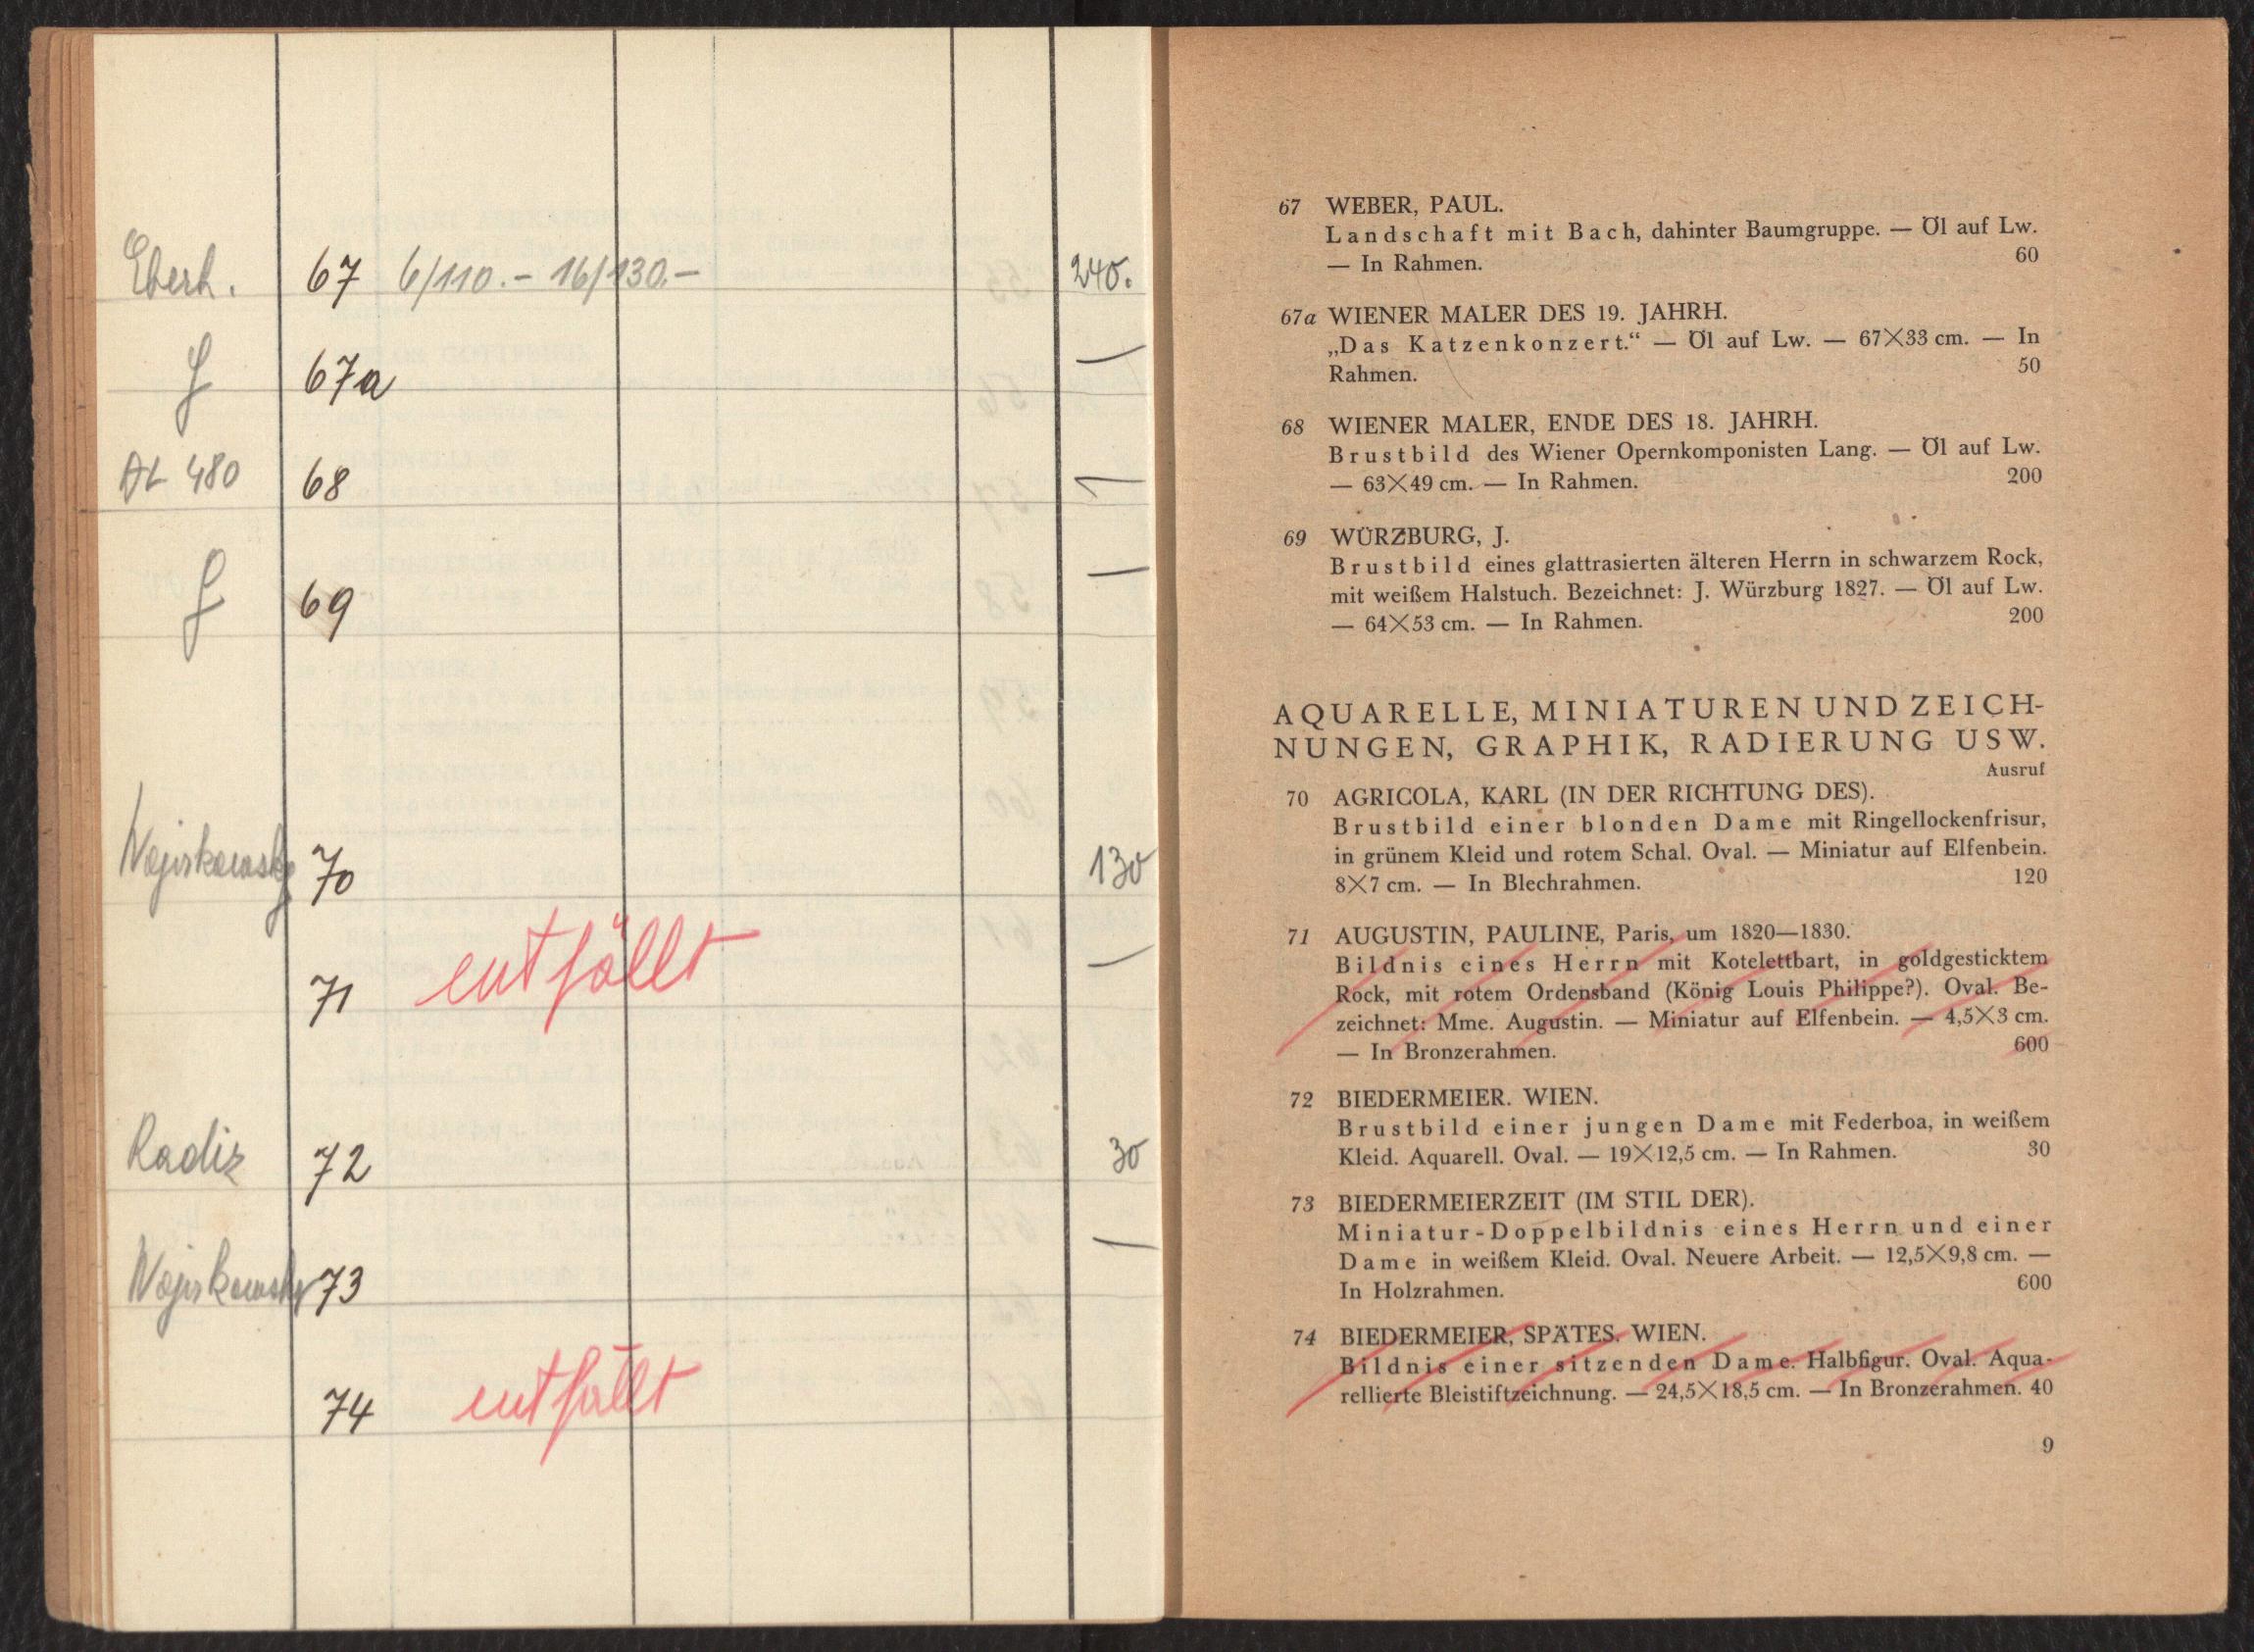 Eberh. 67 6/110.- 16/130.- 240.
67a —
AL 480 68 —
69 —
70 130
71 entfällt —
Radiz 72 30
73 —
74 entfällt
67 WEBER, PAUL.
Landschaft mit Bach, dahinter Baumgruppe. — Öl auf Lw.
— In Rahmen. 60
67a WIENER MALER DES 19. JAHRH.
„Das Katzenkonzert.“ — Öl auf Lw. — 67×33 cm. — In
Rahmen. 50
68 WIENER MALER, ENDE DES 18. JAHRH.
Brustbild des Wiener Opernkomponisten Lang. — Öl auf Lw.
— 63×49 cm. — In Rahmen. 200
69 WÜRZBURG, J.
Brustbild eines glattrasierten älteren Herrn in schwarzem Rock,
mit weißem Halstuch. Bezeichnet: J. Würzburg 1827. — Öl auf Lw.
— 64×53 cm. — In Rahmen. 200
AQUARELLE, MINIATUREN UND ZEICH-
NUNGEN, GRAPHIK, RADIERUNG USW.
Ausruf
70 AGRICOLA, KARL (IN DER RICHTUNG DES).
Brustbild einer blonden Dame mit Ringellockenfrisur,
in grünem Kleid und rotem Schal. Oval. — Miniatur auf Elfenbein.
8×7 cm. — In Blechrahmen. 120
71 AUGUSTIN, PAULINE, Paris, um 1820—1830.
Bildnis eines Herrn mit Kotelettbart, in goldgesticktem
Rock, mit rotem Ordensband (König Louis Philippe?). Oval. Be-
zeichnet: Mme. Augustin. — Miniatur auf Elfenbein. — 4,5×3 cm.
— In Bronzerahmen. 600
72 BIEDERMEIER. WIEN.
Brustbild einer jungen Dame mit Federboa, in weißem
Kleid. Aquarell. Oval. — 19×12,5 cm. — In Rahmen. 30
73 BIEDERMEIERZEIT (IM STIL DER).
Miniatur-Doppelbildnis eines Herrn und einer
Dame in weißem Kleid. Oval. Neuere Arbeit. — 12,5×9,8 cm. —
In Holzrahmen. 600
74 BIEDERMEIER, SPÄTES. WIEN.
Bildnis einer sitzenden Dame. Halbfigur. Oval. Aqua-
rellierte Bleistiftzeichnung. — 24,5×18,5 cm. — In Bronzerahmen. 40
9